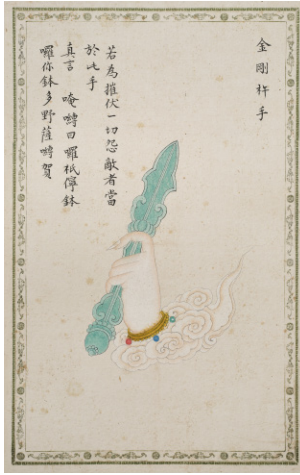 金剛杵手
若為摧伏一切怨敵者當
於此手
真言 唵嚩日囉祇儜鉢
囉你鉢多野薩嚩賀